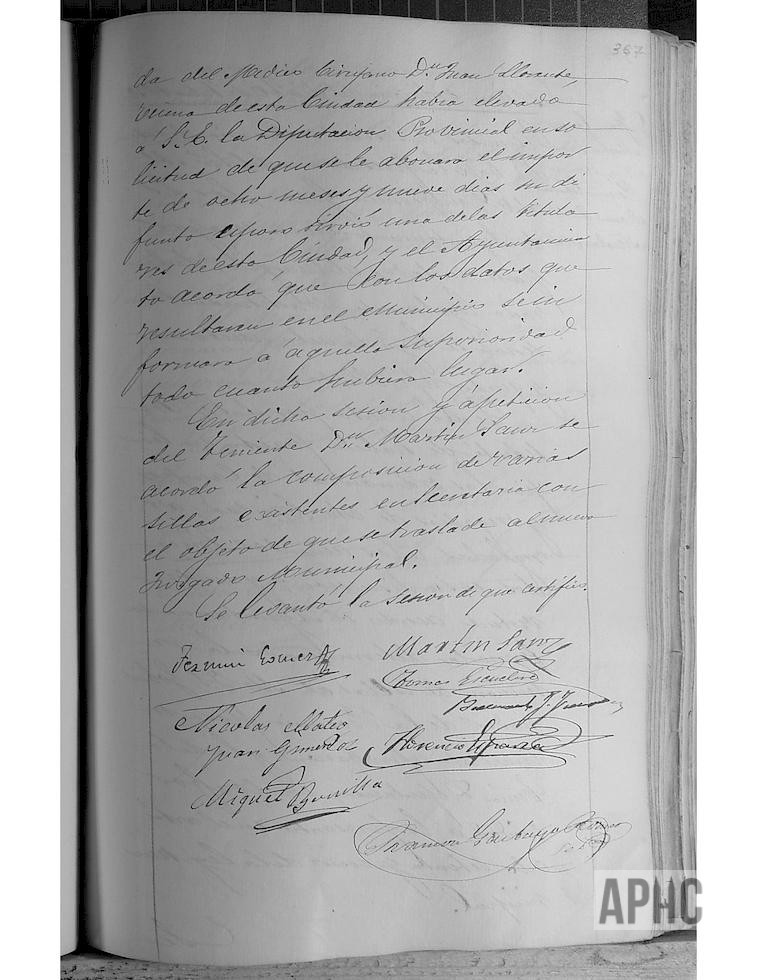 367
da del Médico Cirujano Dn. Juan Llorente,
vecina de esta Ciudad habia elevado
á S.E. la Diputacion Provincial en so
licitud de que se le abonara el impor
te de ocho meses y nueve dias su di
funto esposo sirvió una de las titula
res de esta Ciudad, y el Ayuntamien
to acordó que con los datos que
resultaran en el Municipio se in
formara á aquella Superioridad
todo cuanto hubiera lugar.
En dicha sesion y á peticion
del Teniente Dn. Martin Sanz se
acordó la composicion de varias
sillas existentes en Secretaria con
el objeto de que se traslade al nuevo
Juzgado Municipal.
Se levantó la sesion de que certifico.
Fermin Gomez
Martin Sanz
Tomas
Nicolas Mateo
Juan Gimenez
Florencio
Miguel Bonilla
Ramon Garbayo
APHC